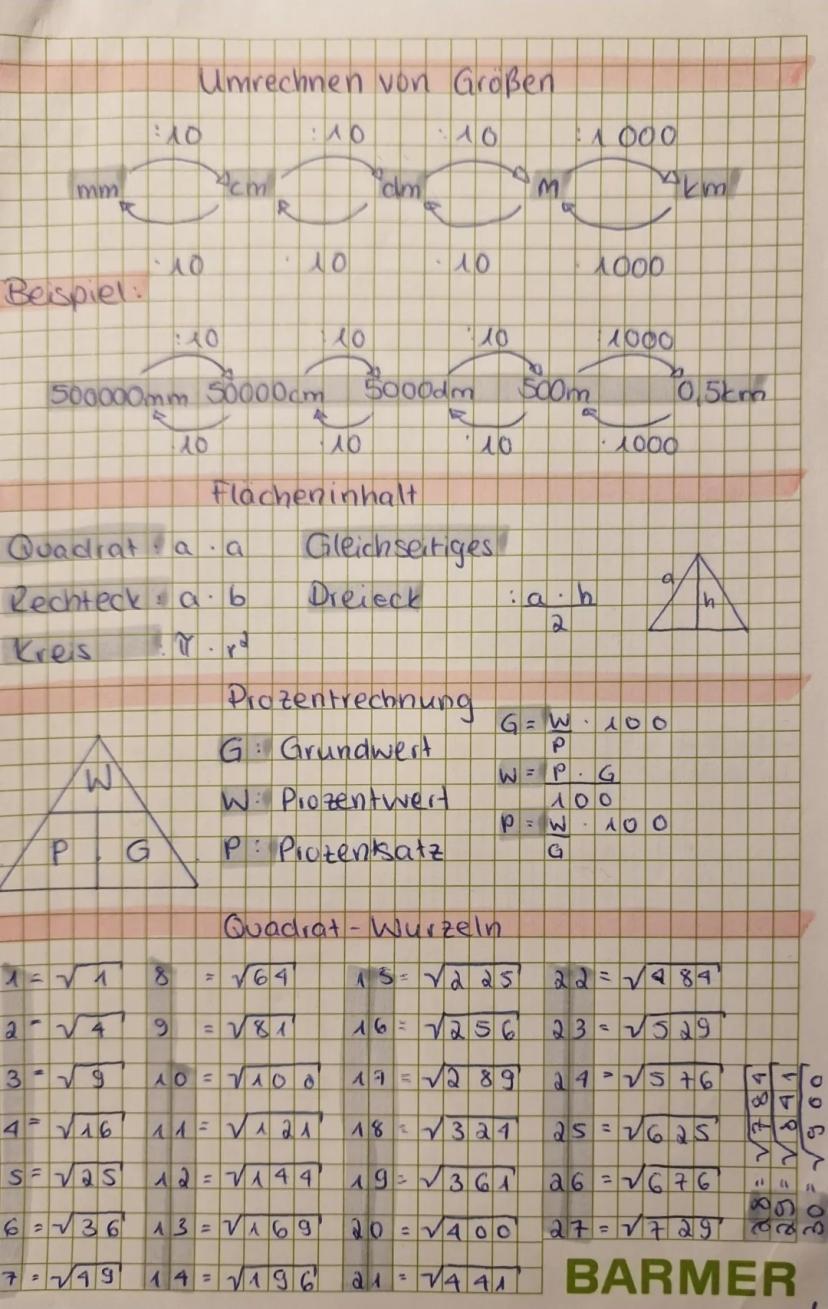 Umrechnen von Größen
:10 :10 :10 :1000
mm cm dm m km
·10 ·10 ·10 ·1000
Beispiel:
:10 :10 :10 :1000
500000mm 50000cm 5000dm 500m 0,5km
·10 ·10 ·10 ·1000
Flächeninhalt
Quadrat: a · a Gleichseitiges
Rechteck: a · b Dreieck : a · h / 2
a h
Kreis : π · r²
Prozentrechnung
G = W/P · 100
G: Grundwert
W = P · G / 100
W: Prozentwert
P = W/G · 100
P: Prozensatz
W
P G
Quadrat-Wurzeln
1 = √1 8 = √64 15 = √225 22 = √484
2 = √4 9 = √81 16 = √256 23 = √529
3 = √9 10 = √100 17 = √289 24 = √576
4 = √16 11 = √121 18 = √324 25 = √625
5 = √25 12 = √144 19 = √361 26 = √676
6 = √36 13 = √169 20 = √400 27 = √729
7 = √49 14 = √196 21 = √441
28 = √784
29 = √841
30 = √900
BARMER